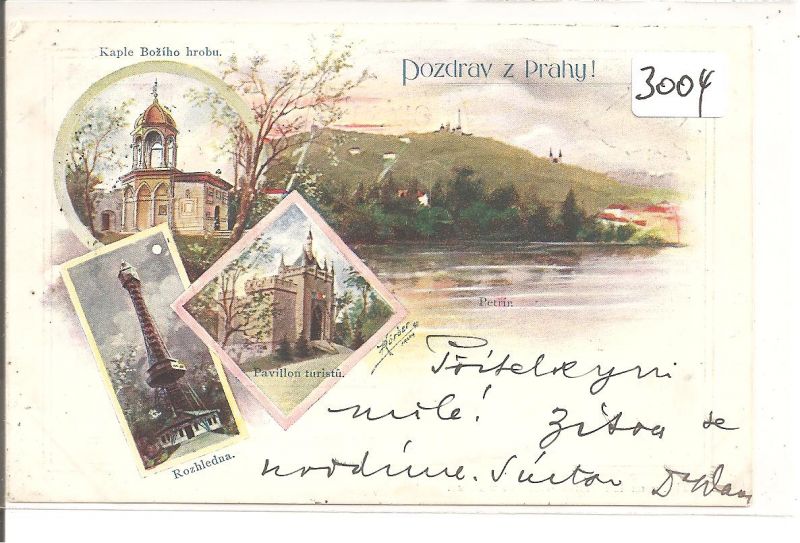 Kaple Božího hrobu.
Pozdrav z Prahy!
3004
Petřín
Pavillon turistů.
Rozhledna.
Přítelkyni
milé! Zítra se
uvidíme.
Dr